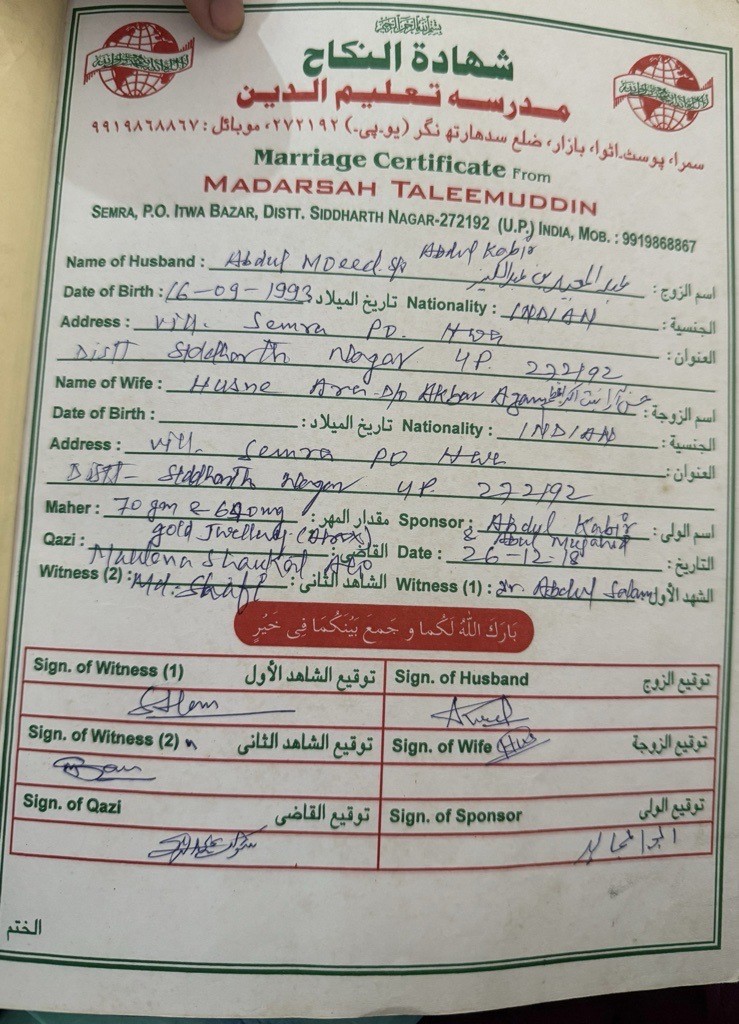 شهادة النكاح
مدرسه تعليم الدين
سمرا، پوسٹ۔اٹوا، بازار، ضلع سدهارتھ نگر (یو۔پی۔) ۲۷۲۱۹۲، موبائل: ۹۹۱۹۸۶۸۸۶۷
Marriage Certificate From
MADARSAH TALEEMUDDIN
SEMRA, P.O. ITWA BAZAR, DISTT. SIDDHARTH NAGAR-272192 (U.P.) INDIA, MOB. : 9919868867
Name of Husband : Abdul Moeed s/o Abdul Kabir اسم الزوج :
Date of Birth : 16-09-1993 تاريخ الميلاد : Nationality : INDIAN الجنسية :
Address : Vill. Semra PO. العنوان :
Distt Siddharth Nagar UP. 272192
Name of Wife : Husne Ara D/o Akbar Azam اسم الزوجة :
Date of Birth : تاريخ الميلاد : Nationality : INDIAN الجنسية :
Address : Vill. Semra PO العنوان :
Distt- Siddharth Nagar UP. 272192
Maher : 70 gm & 640 mg مقدار المهر : Sponsor : Abdul Kabir اسم الولى :
gold Jwellery (Aprox) & Abul Mujahid
Qazi : Maulana Shaukat القاضى : Date : 26-12-18 التاريخ :
Witness (2) : Md. Shafi الشاهد الثانى : Witness (1) : Dr. Abdul Salam الشهد الأول :
بَارَكَ اللّٰهُ لَكُما و جَمعَ بَيْنَكُمَا فِى خَيْرٍ
Sign. of Witness (1) توقيع الشاهد الأول Sign. of Husband توقيع الزوج
Sign. of Witness (2) توقيع الشاهد الثانى Sign. of Wife توقيع الزوجة
Sign. of Qazi توقيع القاضى Sign. of Sponsor توقيع الولى
الختم